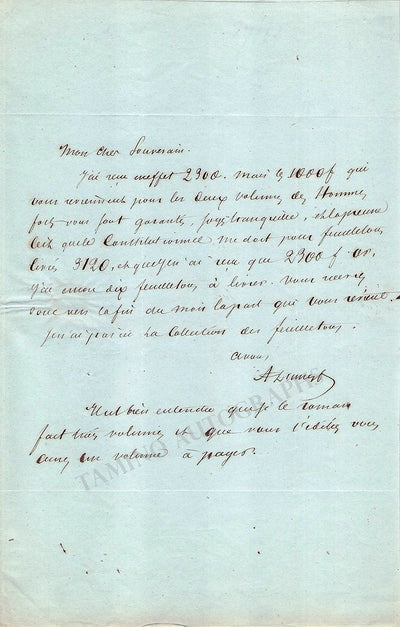 Mon cher Souverain.
J'ai reçu en effet 2300. mais les 1000 f qui
vous reviennent pour les deux volumes des Hommes
forts vous sont garantis, soyez tranquille, et la preuve
c'est que le Constitutionnel me doit pour feuilletons
livrés 3120, et que je n'ai reçu que 2300 f. or,
j'ai encore dix feuilletons à livrer. vous recevrez
donc vers la fin du mois la part qui vous revient.
je n'ai pas ici la collection des feuilletons.
à vous,
Il est bien entendu que si le roman
fait trois volumes et que vous l'éditez vous
aurez un volume à payer.
TAMINO AUTOGRAPHS